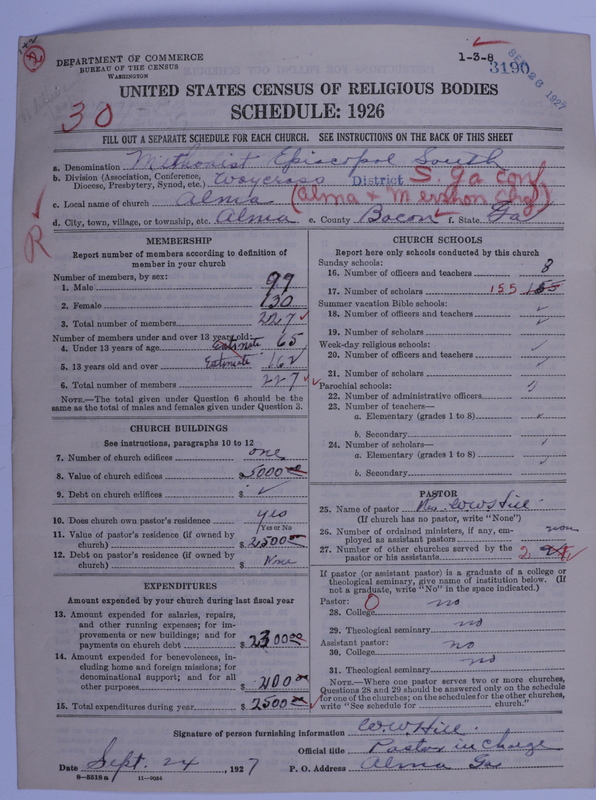 DEPARTMENT OF COMMERCE
BUREAU OF THE CENSUS
WASHINGTON
1-3-8
3190
SEP 26 1927
UNITED STATES CENSUS OF RELIGIOUS BODIES
SCHEDULE: 1926
30
FILL OUT A SEPARATE SCHEDULE FOR EACH CHURCH. SEE INSTRUCTIONS ON THE BACK OF THIS SHEET
a. Denomination Methodist Episcopal South
b. Division (Association, Conference, Diocese, Presbytery, Synod, etc.) Waycross District S. Ga con
c. Local name of church Alma (Alma & Mershon Chg)
d. City, town, village, or township, etc. Alma e. County Bacon f. State Ga
R
MEMBERSHIP
Report number of members according to definition of
member in your church
Number of members, by sex:
1. Male 99
2. Female 130
3. Total number of members 227
Number of members under and over 13 years old:
4. Under 13 years of age Estimate 65
5. 13 years old and over Estimate 162
6. Total number of members 227
NOTE.—The total given under Question 6 should be
same as the total of males and females given under Question 3.
CHURCH BUILDINGS
See instructions, paragraphs 10 to 12
7. Number of church edifices one
8. Value of church edifices $ 5000 00
9. Debt on church edifices $
10. Does church own pastor's residence yes
Yes or No
11. Value of pastor's residence (if owned by
church) $ 2500 00
12. Debt on pastor's residence (if owned by
church) $ None
EXPENDITURES
Amount expended by your church during last fiscal year
13. Amount expended for salaries, repairs,
and other running expenses; for im-
provements or new buildings; and for
payments on church debt $ 2300 00
14. Amount expended for benevolences, in-
cluding home and foreign missions; for
denominational support; and for all
other purposes $ 200 00
15. Total expenditures during year $ 2500 00
CHURCH SCHOOLS
Report here only schools conducted by this church
Sunday schools:
16. Number of officers and teachers 8
17. Number of scholars 155
Summer vacation Bible schools:
18. Number of officers and teachers
19. Number of scholars
Week-day religious schools:
20. Number of officers and teachers
21. Number of scholars
Parochial schools:
22. Number of administrative officers
23. Number of teachers—
a. Elementary (grades 1 to 8)
b. Secondary
24. Number of scholars—
a. Elementary (grades 1 to 8)
b. Secondary
PASTOR
25. Name of pastor Rev. W W Hill
(If church has no pastor, write "None")
26. Number of ordained ministers, if any, em-
ployed as assistant pastors none
27. Number of other churches served by the
pastor or his assistants 2
If pastor (or assistant pastor) is a graduate of a college or
theological seminary, give name of institution below. (If
not a graduate, write "No" in the space indicated.)
Pastor:
28. College no
29. Theological seminary no
Assistant pastor:
30. College no
31. Theological seminary no
NOTE.—Where one pastor serves two or more churches,
Questions 28 and 29 should be answered only on the schedule
for one of the churches; on the schedules for the other churches,
write "See schedule for church."
Signature of person furnishing information W.W. Hill
Official title Pastor in charge
Date Sept. 24, 1927 P. O. Address Alma Ga
8—5518 a 11—9034